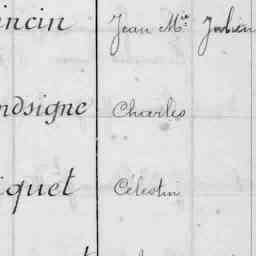 incin Jean M.ie Julien
ndsigne Charles
iquet Célestin